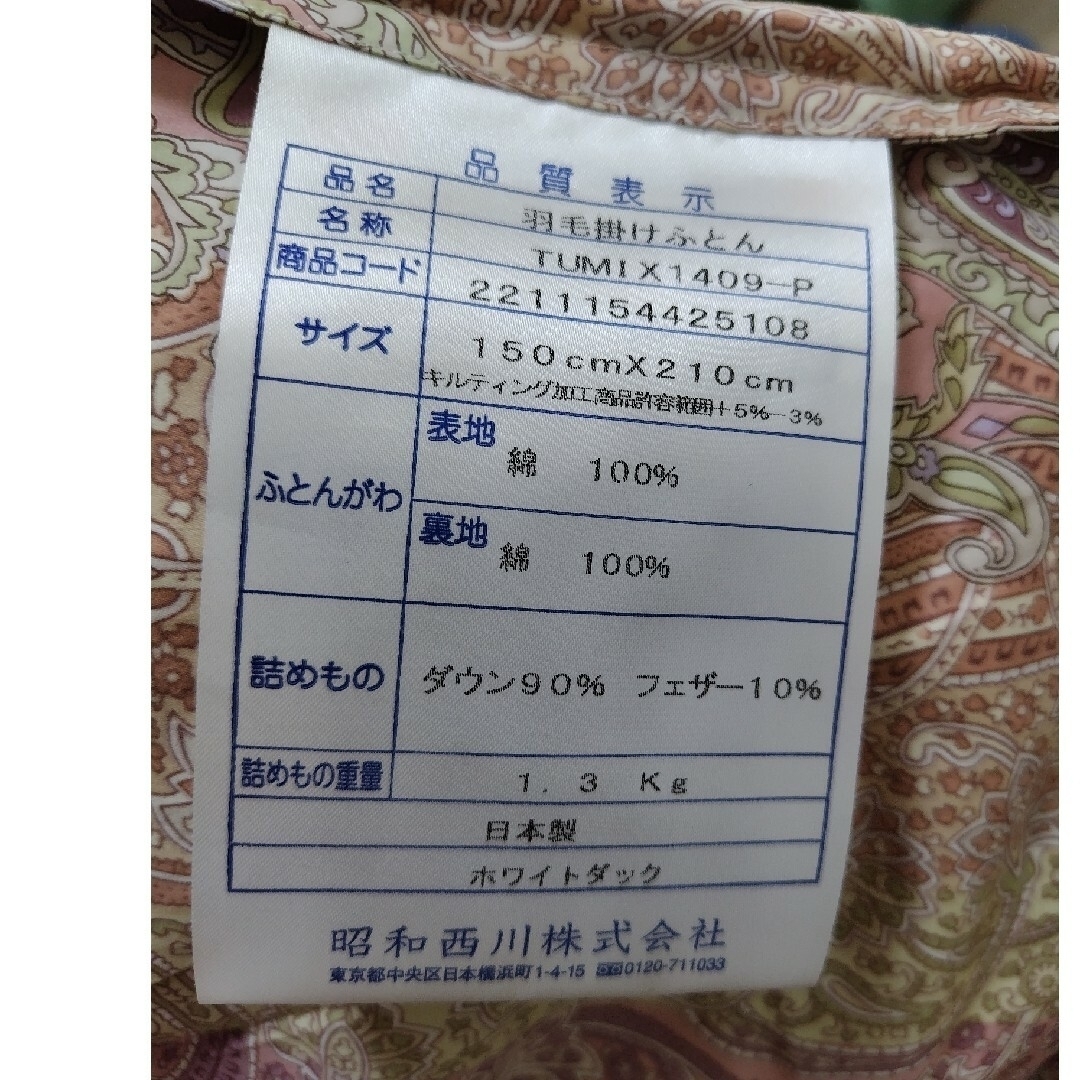 品質表示
品名 羽毛掛けふとん
名称 TUMIX1409-P
商品コード 2211154425108
サイズ 150cmX210cm
キルティング加工商品許容範囲+5%-3%
ふとんがわ 表地 綿 100%
裏地 綿 100%
詰めもの ダウン90% フェザー10%
詰めもの重量 1.3 Kg
日本製
ホワイトダック
昭和西川株式会社
東京都中央区日本橋浜町1-4-15 0120-711033